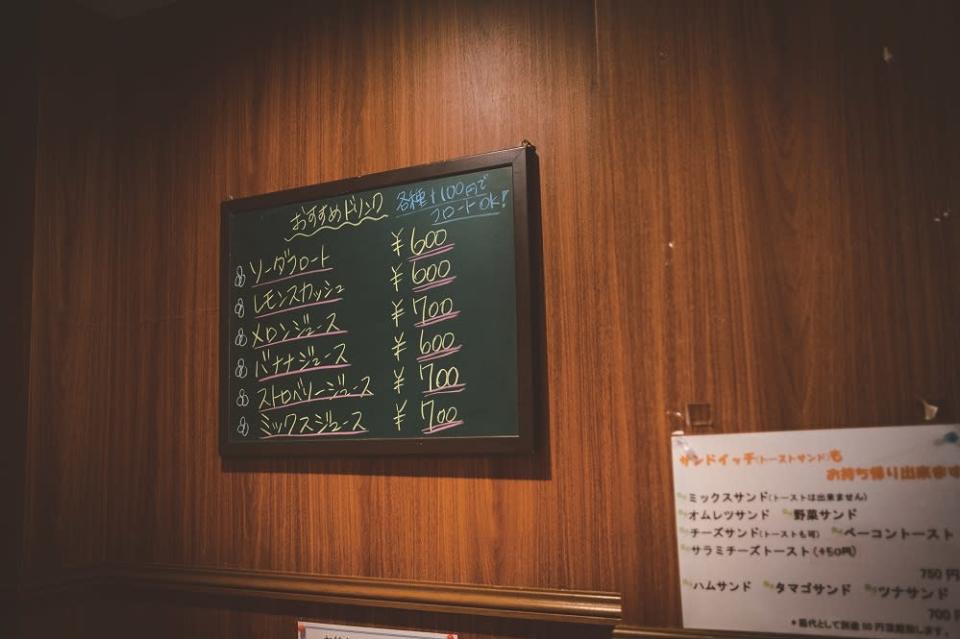 おすすめドリンク
各種+100円で
フロートOK!
ソーダフロート ¥600
レモンスカッシュ ¥600
メロンジュース ¥700
バナナジュース ¥600
ストロベリージュース ¥700
ミックスジュース ¥700
サンドイッチ(トーストサンド)も
お持ち帰り出来ます
ミックスサンド(トーストは出来ません)
オムレツサンド 野菜サンド
チーズサンド(トーストも可) ベーコントースト
サラミチーズトースト(+50円)
750円
ハムサンド タマゴサンド ツナサンド
700円
*箱代として別途50円頂戴致します。